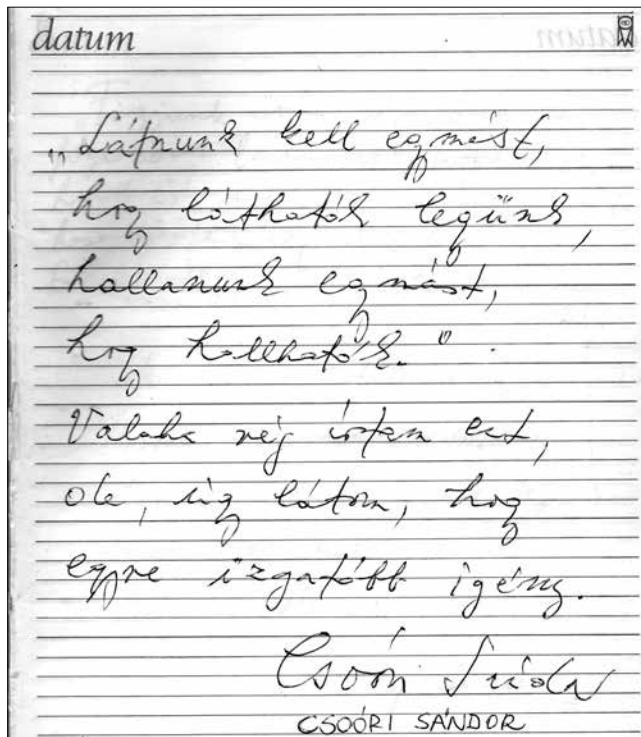 datum
„Látnunk kell egymást,
hogy láthatók legyünk,
hallanunk egymást,
hogy hallhatók."
Valaha rég írtam ezt,
de, úgy látom, hogy
egyre izgatóbb igény.
Csoóri Sándor
CSOÓRI SÁNDOR